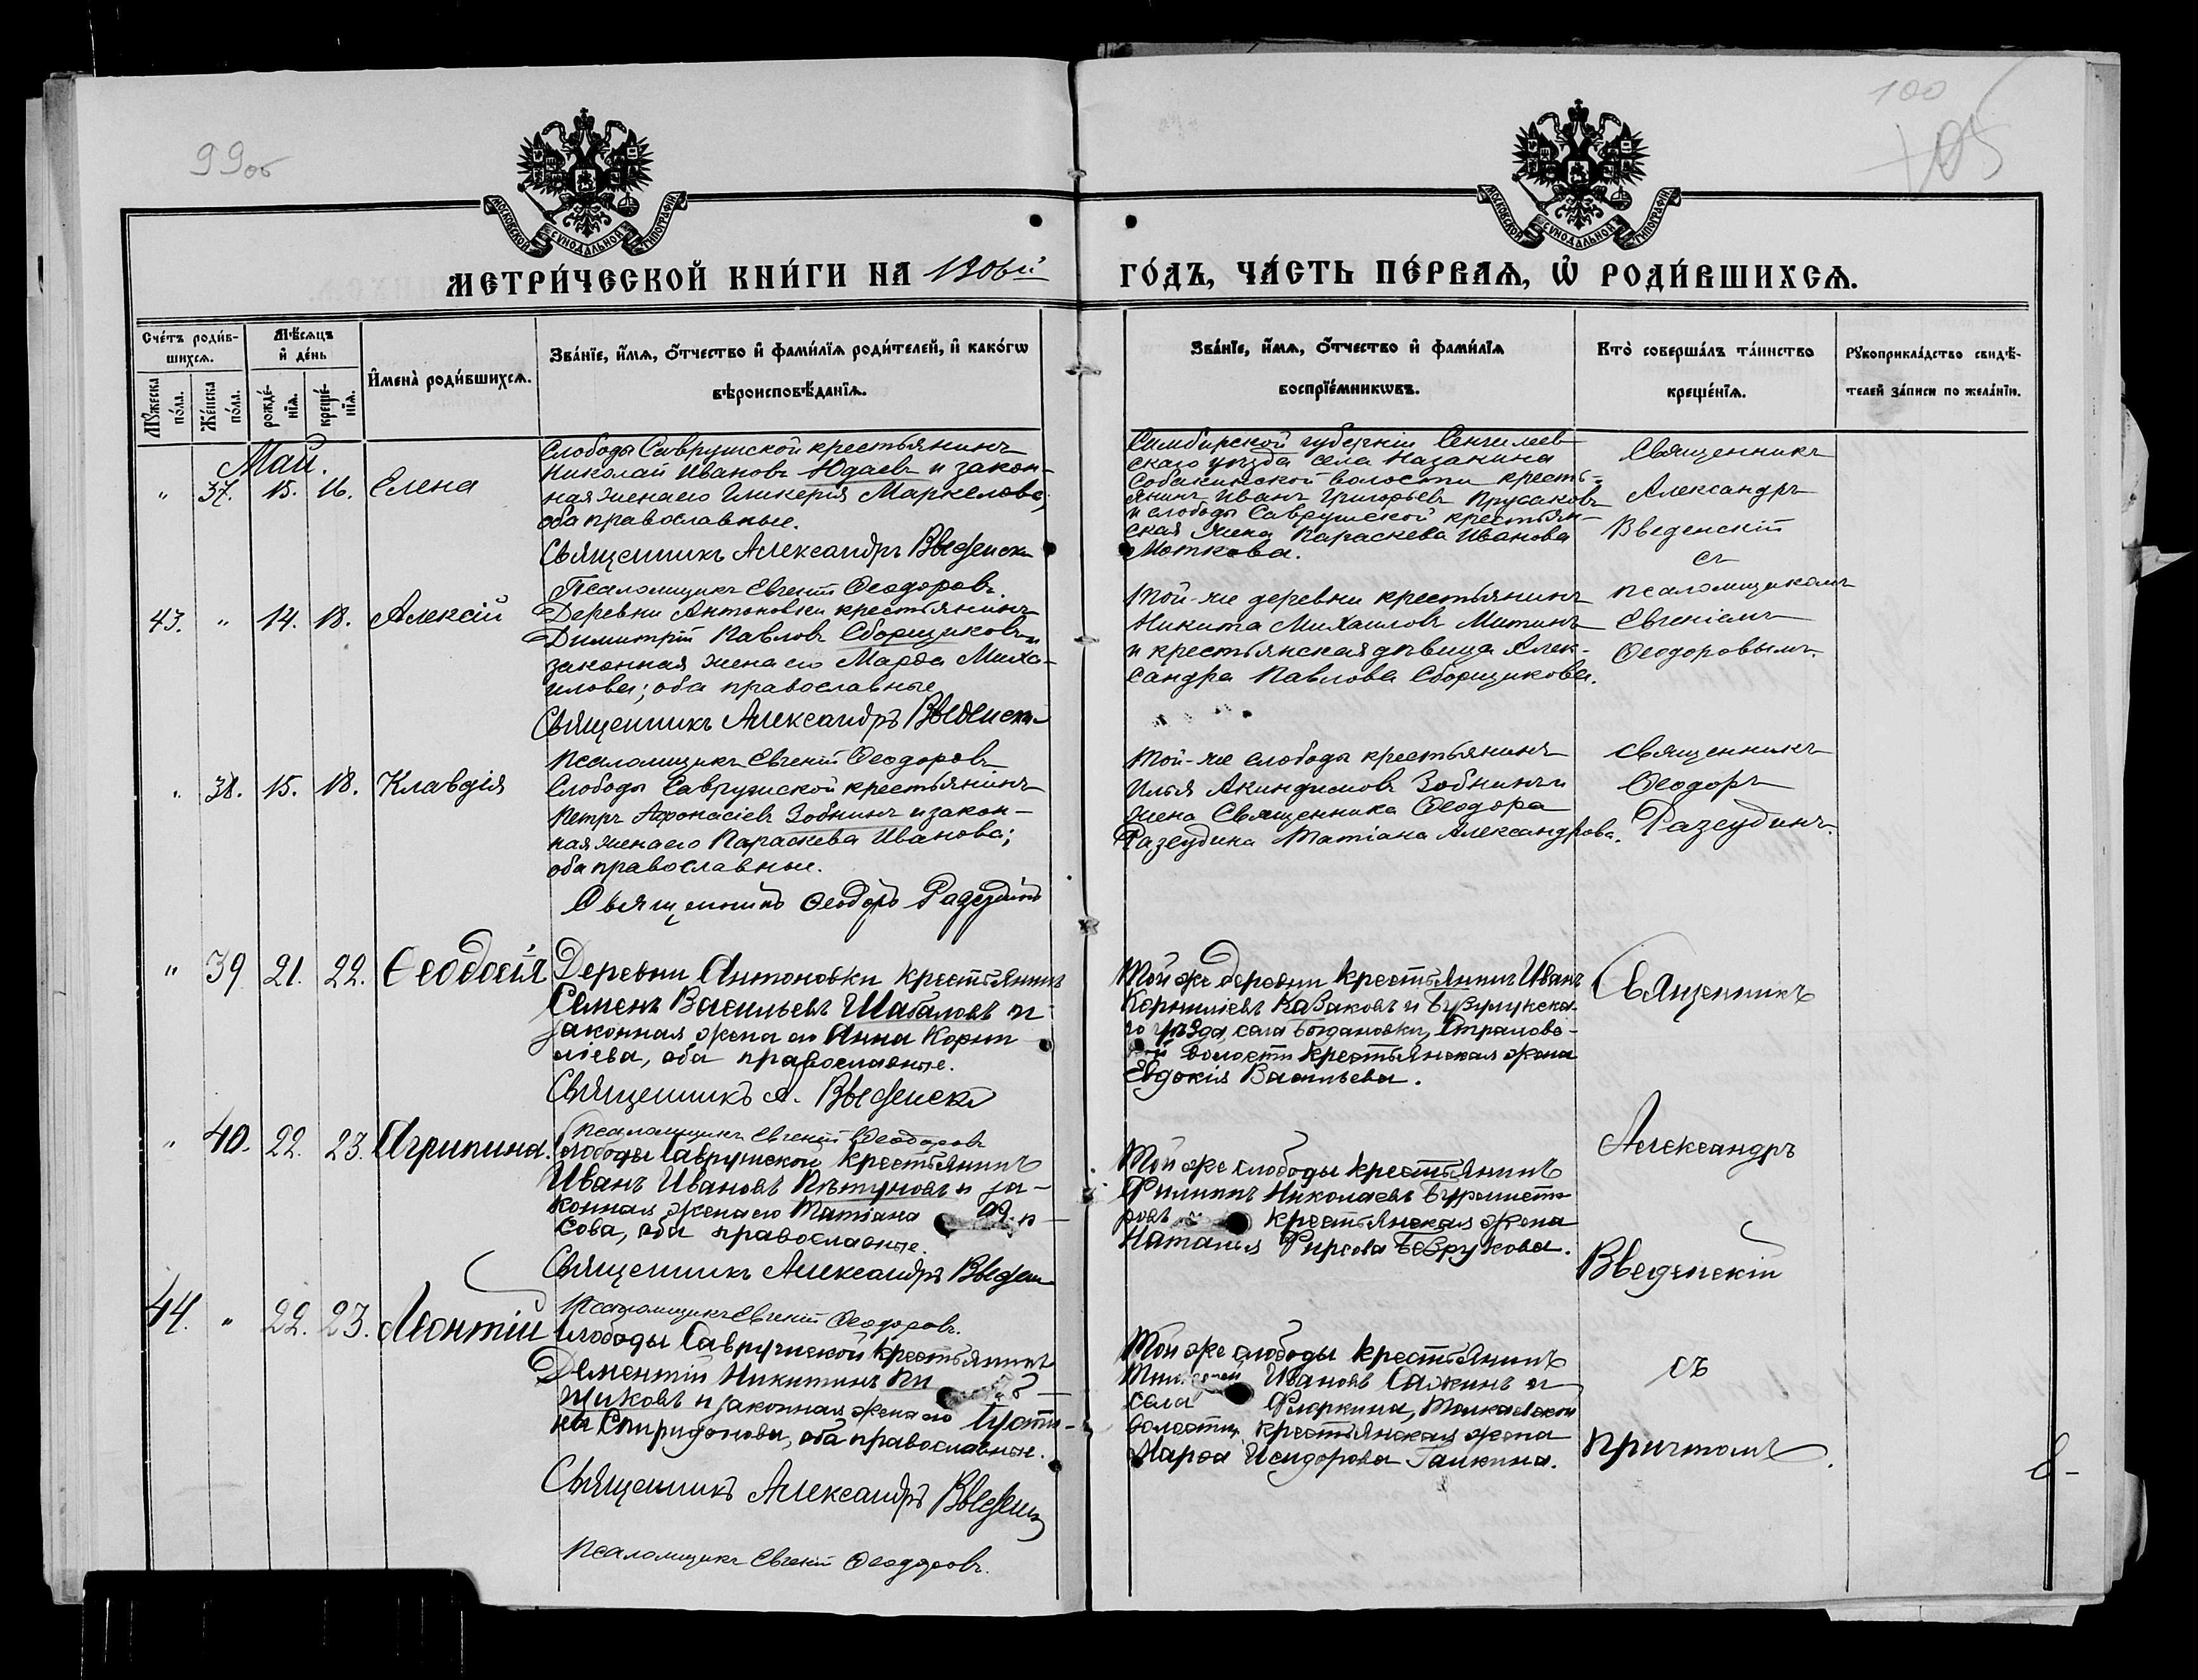 99об
100
105
МОСКОВСКОЙ СѴНОДАЛЬНОЙ ТИПОГРАФІИ
МОСКОВСКОЙ СѴНОДАЛЬНОЙ ТИПОГРАФІИ
МЕТРИ́ЧЕСКОЙ КНИ́ГИ НА 1906й ГО́ДЪ, ЧА́СТЬ ПЕ́РВАѦ, Ѡ҆ РОДИ́ВШИХСѦ.
Сче́тъ роди́в-
шихсѧ.
Мꙋ́жеска
по́ла.
Же́нска
по́ла.
Мѣ́сѧцъ
и҆ де́нь
рожде́-
нїѧ.
креще́-
нїѧ.
И҆мена̀ роди́вшихсѧ.
Зва́нїе, и҆́мѧ, ѻ҆́тчество и҆ фами́лїѧ роди́телей, и҆ како́гѡ
вѣроисповѣ́данїѧ.
Зва́нїе, и҆́мѧ, ѻ҆́тчество и҆ фами́лїѧ
воспрїе́мникѡвъ.
Кто̀ соверша́лъ та́инство
креще́нїѧ.
Рꙋкоприкла́дство свидѣ́-
телей за́писи по жела́нїю.
Май.
" 37. 15. 16. Елена
Слободы Саврушской крестьянинъ
Николай Ивановъ Юдаевъ и закон-
ная жена его Гликерія Маркелова;
оба православные.
Священникъ Александръ Введенскі
Псаломщикъ Евгеній Ѳеодоровъ.
Симбирской губерніи Сенгилеев-
скаго уѣзда села Назайкина
Собакинской волости кресть-
янинъ Иванъ Григорьевъ Прусаковъ
и слободы Саврушской крестьян-
ская жена Параскева Иванова
Моткова.
Священникъ
Александръ
Введенскій
съ
псаломщикомъ
Евгеніемъ
Ѳеодоровымъ.
43. " 14. 18. Алексій
Деревни Антоновки крестьянинъ
Димитрій Павловъ Сборщиковъ и
законная жена его Марѳа Миха-
илова; оба православные
Священникъ Александръ Введенскі
Псаломщикъ Евгеній Ѳеодоровъ
Той-же деревни крестьянинъ
Никита Михаиловъ Митинъ
и крестьянская дѣвица Алек-
сандра Павлова Сборщикова.
" 38. 15. 18. Клавдія
Слободы Саврушской крестьянинъ
Петръ Аѳонасіевъ Зобнинъ и закон-
ная жена его Параскева Иванова;
оба православные.
Священникъ Ѳеодоръ Разеудинъ
Той-же слободы крестьянинъ
Илья Акиндиновъ Зобнинъ и
жена Священника Ѳеодора
Разеудина Татіана Александрова.
Священникъ
Ѳеодоръ
Разеудинъ.
" 39 21. 22. Ѳеодосія
Деревни Антоновки крестьянинъ
Семенъ Васильевъ Шабаловъ и
законная жена его Анна Корни
ліева, оба православные.
Священникъ А. Введенскі
Псаломщикъ Евгеній Ѳеодоровъ
Той же деревни крестьянинъ Иванъ
Корниліевъ Казаковъ и Бузулукска-
го уѣзда, села Богдановки,
волости крестьянская жена
Евдокія Васильева.
Священникъ
" 40. 22. 23. Агрипина.
Слободы Саврушской крестьянинъ
Иванъ Ивановъ Пѣтуновъ и за-
конная жена его Татіана
сова, оба православные.
Священникъ Александръ Введен
Псаломщикъ Евгеній Ѳеодоровъ.
Той же слободы крестьянинъ
Филиппъ Николаевъ Бурмист-
ровъ и крестьянская жена
Наталья Фирсова Безрукова.
Александръ
Введенскій
44. " 22. 23. Леонтій
Слободы Саврушской крестьянинъ
Дементій Никитинъ
щиковъ и законная жена его Іусти-
на Спиридонова, оба православные.
Священникъ Александръ Введенск
Псаломщикъ Евгеній Ѳеодоровъ.
Той же слободы крестьянинъ
Ивановъ Сажинъ и
села Фюркина,
волости, крестьянская жена
Марѳа Исидорова Галкина.
съ
причтомъ.